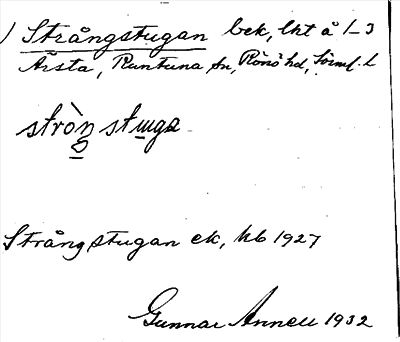 ) Strångstugan bek, lht å 1-3
Årsta, Runtuna sn, Rönö hd, Söml. L
stròn stuga
Strångstugan ek, hb 1927
Gunnar Annell 1932